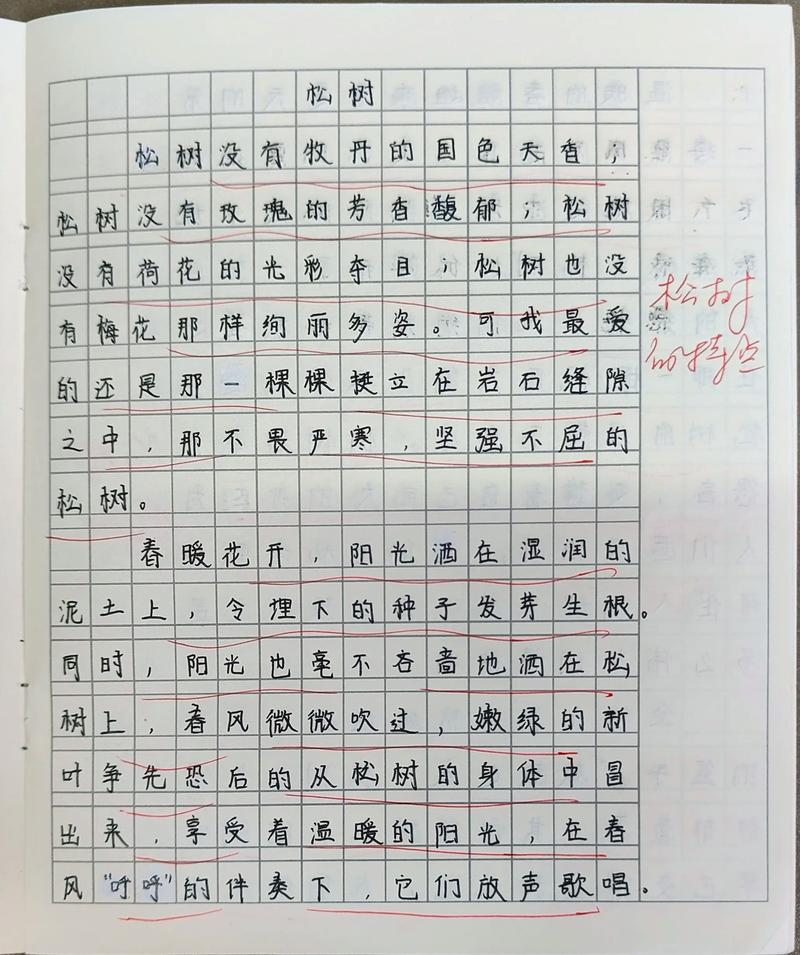 松树
松树没有牡丹的国色天香；
松树没有玫瑰的芳香馥郁；松树
没有荷花的光彩夺目；松树也没
有梅花那样绚丽多姿。可我最爱
的还是那一棵棵挺立在岩石缝隙
之中，那不畏严寒，坚强不屈的
松树。
春暖花开，阳光洒在湿润的
泥土上，令埋下的种子发芽生根。
同时，阳光也毫不吝啬地洒在松
树上，春风微微吹过，嫩绿的新
叶争先恐后的从松树的身体中冒
出来，享受着温暖的阳光，在春
风“呼呼”的伴奏下，它们放声歌唱。
松树
的特点